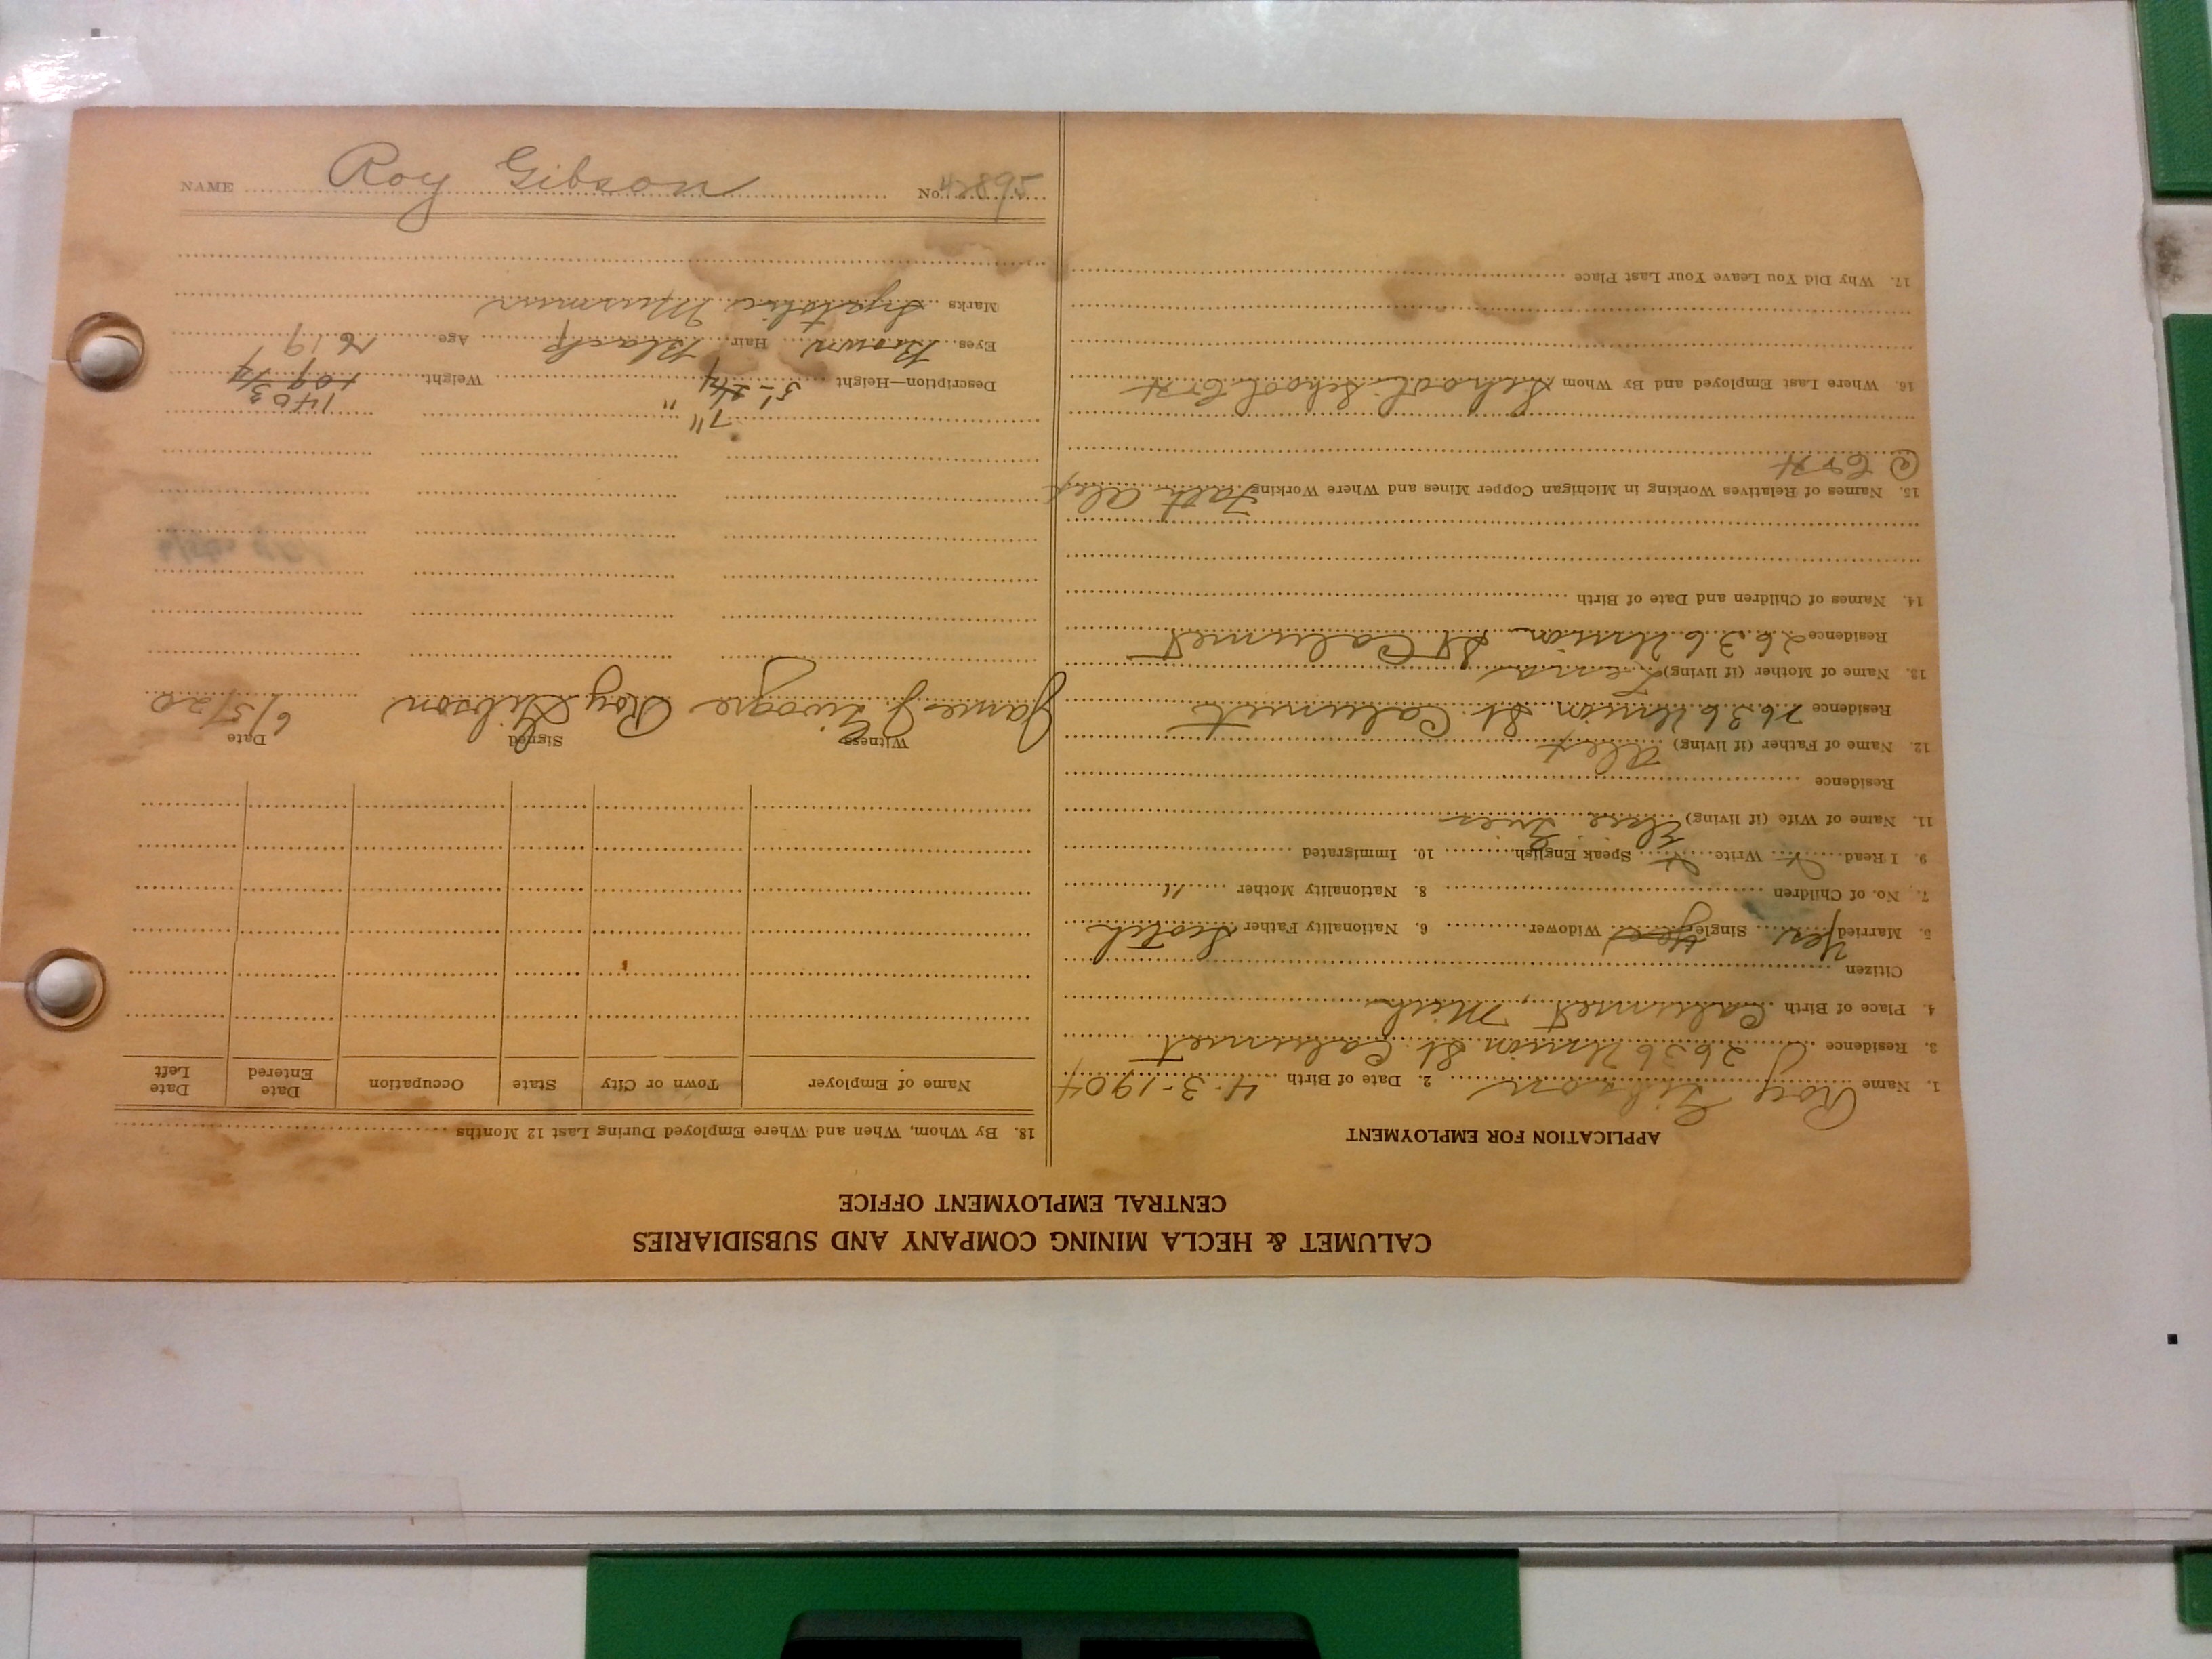 CALUMET & HECLA MINING COMPANY AND SUBSIDIARIES
CENTRAL EMPLOYMENT OFFICE
APPLICATION FOR EMPLOYMENT
1. Name Roy Gibson 2. Date of Birth 4-3-1904
3. Residence 2636 Union St. Calumet
4. Place of Birth Calumet, Mich
Citizen
5. Married Yes Single Yes Widower 6. Nationality Father Scotch
7. No. of Children 8. Nationality Mother "
9. I Read Write Speak English 10. Immigrated
11. Name of Wife (if living)
Residence
12. Name of Father (if living) Alex
Residence 2636 Union St. Calumet
13. Name of Mother (if living) Lena
Residence 2636 Union St Calumet
14. Names of Children and Date of Birth
15. Names of Relatives Working in Michigan Copper Mines and Where Working Fath Alex
@ C & H
16. Where Last Employed and By Whom School School C & H
17. Why Did You Leave Your Last Place
18. By Whom, When and Where Employed During Last 12 Months
Name of Employer Town or City State Occupation Date Entered Date Left
Witness Signed Date
James J. Roy Gibson 6/5/20
7" 140
Description—Height 5' Weight 109
Eyes Brown Hair Black Age 16 19
Marks
NAME Roy Gibson No. 42895